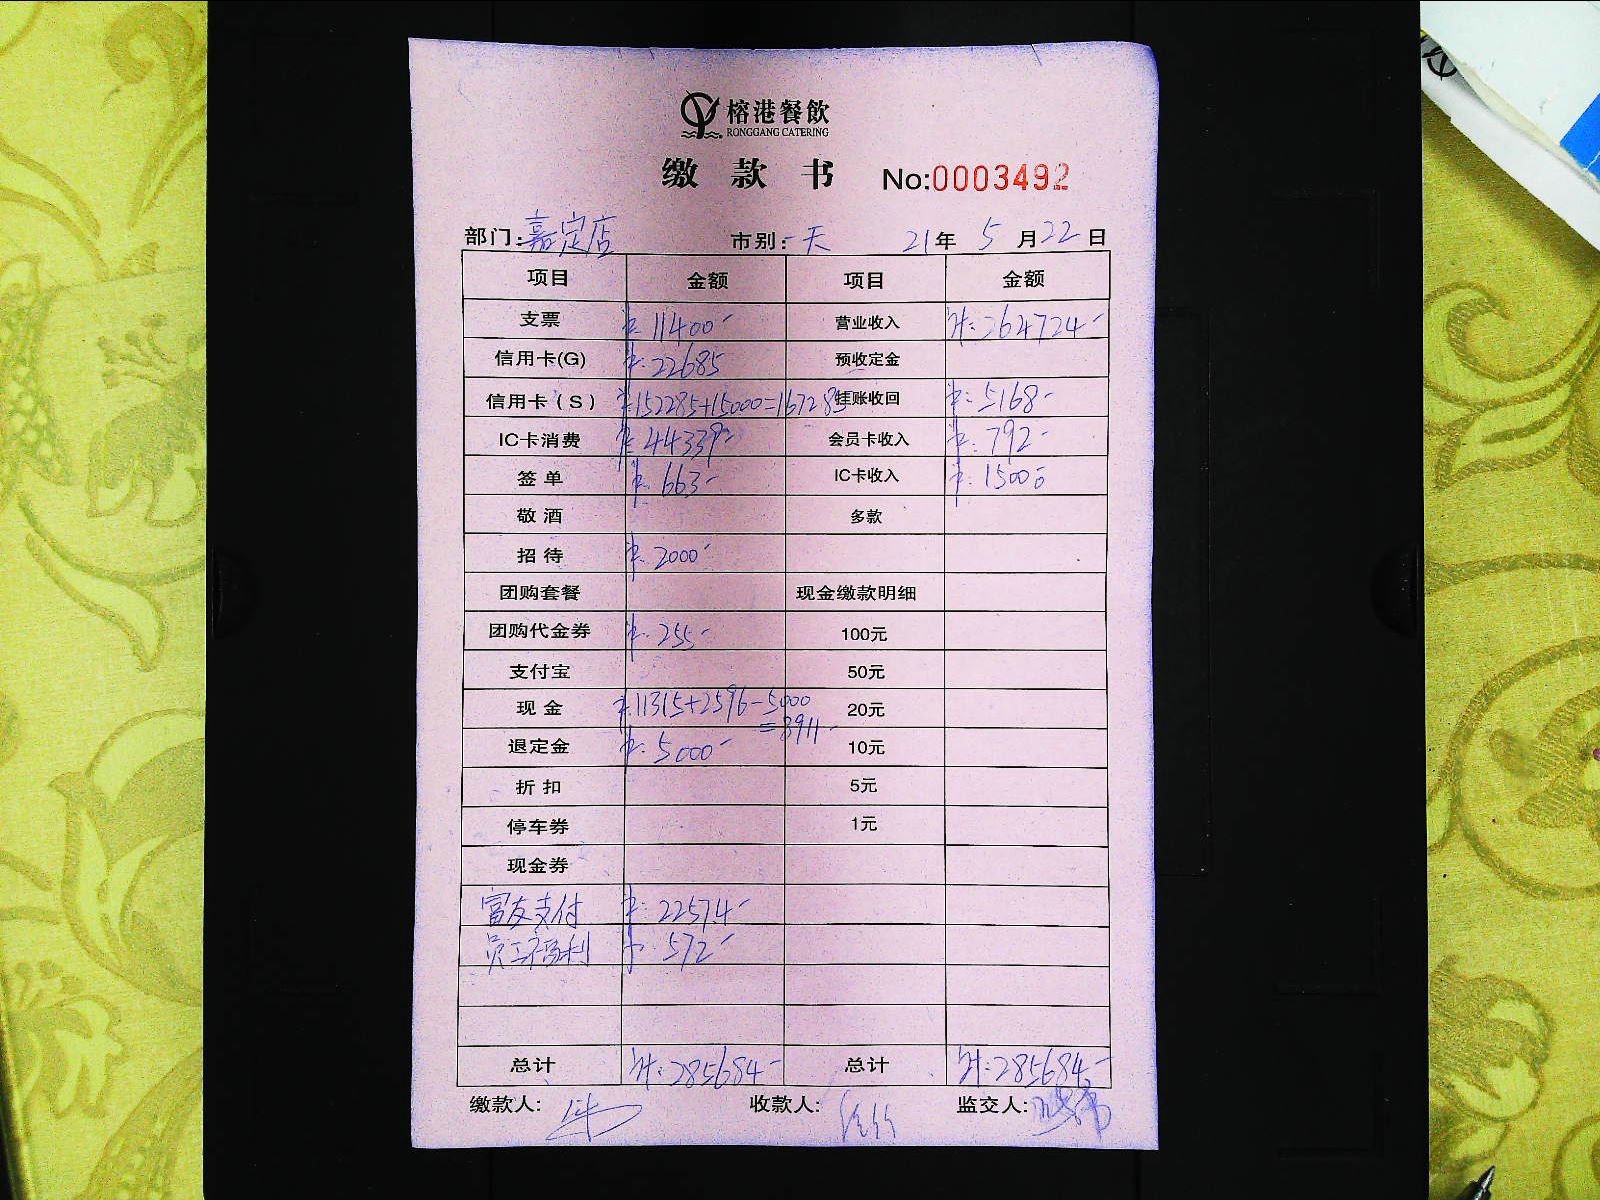 榕港餐飲
RONGGANG CATERING
缴款书 No:0003492
部门:嘉定店 市别:一天 21年5月22日
项目 金额 项目 金额
支票 ¥:11400- 营业收入 ¥:264724-
信用卡(G) ¥:22685 预收定金
信用卡(S) ¥:152285+15000=167285 挂账收回 ¥:5168-
IC卡消费 ¥:44339- 会员卡收入 ¥:792-
签单 ¥:663- IC卡收入 ¥:15000
敬酒 多款
招待 ¥:2000-
团购套餐 现金缴款明细
团购代金券 ¥:255- 100元
支付宝 50元
现金 ¥:11315+2596-5000 20元
=8911-
退定金 ¥:5000- 10元
折扣 5元
停车券 1元
现金券
富友支付 ¥:22574-
员工福利 ¥:572-
总计 ¥:285684- 总计 ¥:285684-
缴款人: 收款人: 监交人: